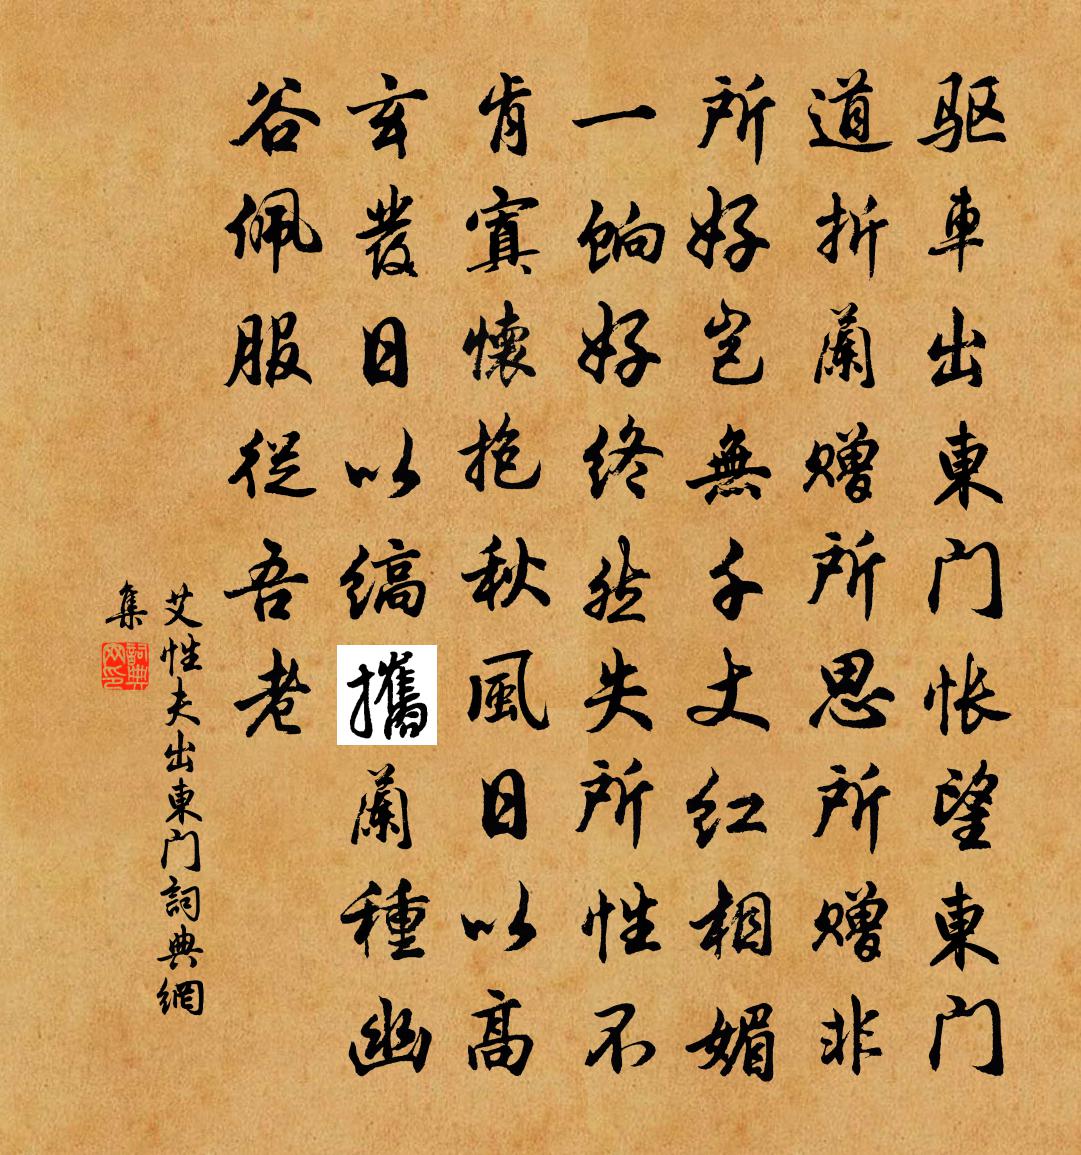 驱車出東门怅望東门
道折蘭赠所思所赠非
所好岂無千丈红相媚
一饷好终然失所性不
肯寘懷抱秋風日以高
玄髮日以缟攜蘭種幽
谷佩服従吾老
艾性夫出東门詞典網
集
詞典网印